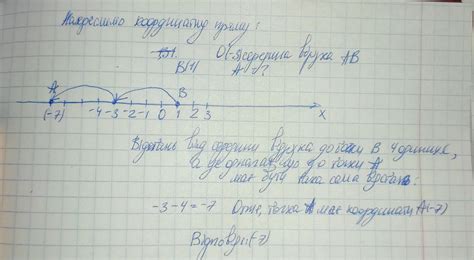 Накреслимо координатну пряму:
O(-3) середина відрізка AB
B(1)
A - ?
A B
(-7) -4 -3 -2 -1 0 1 2 3 x
Відстань від середини відрізка до точки B 4 одиниці,
а це означає що до точки A
має бути така сама відстань:
-3-4=-7 Отже, точка A має координати A(-7)
Відповідь: (-7)